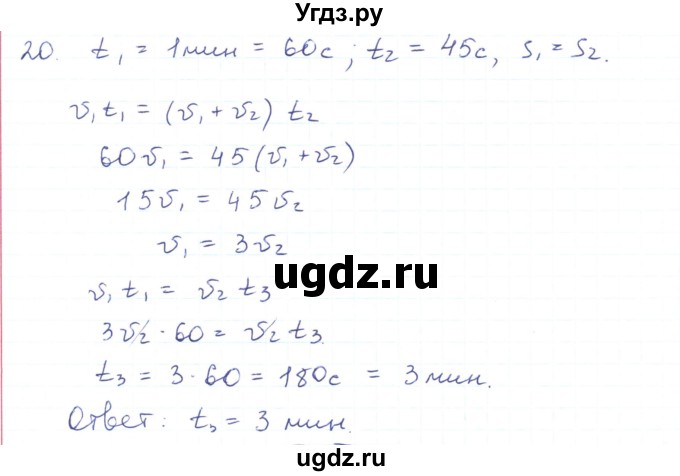 Угдз.ру
20. t₁ = 1мин = 60с; t₂ = 45с, s₁ = s₂.
υ₁t₁ = (υ₁ + υ₂) t₂
60υ₁ = 45(υ₁ + υ₂)
15υ₁ = 45υ₂
υ₁ = 3υ₂
ugdz.ru
υ₁ t₁ = υ₂ t₃
3υ₂ · 60 = υ₂ t₃.
t₃ = 3 · 60 = 180с = 3мин.
Ответ: t₃ = 3 мин.
ugdz.ru